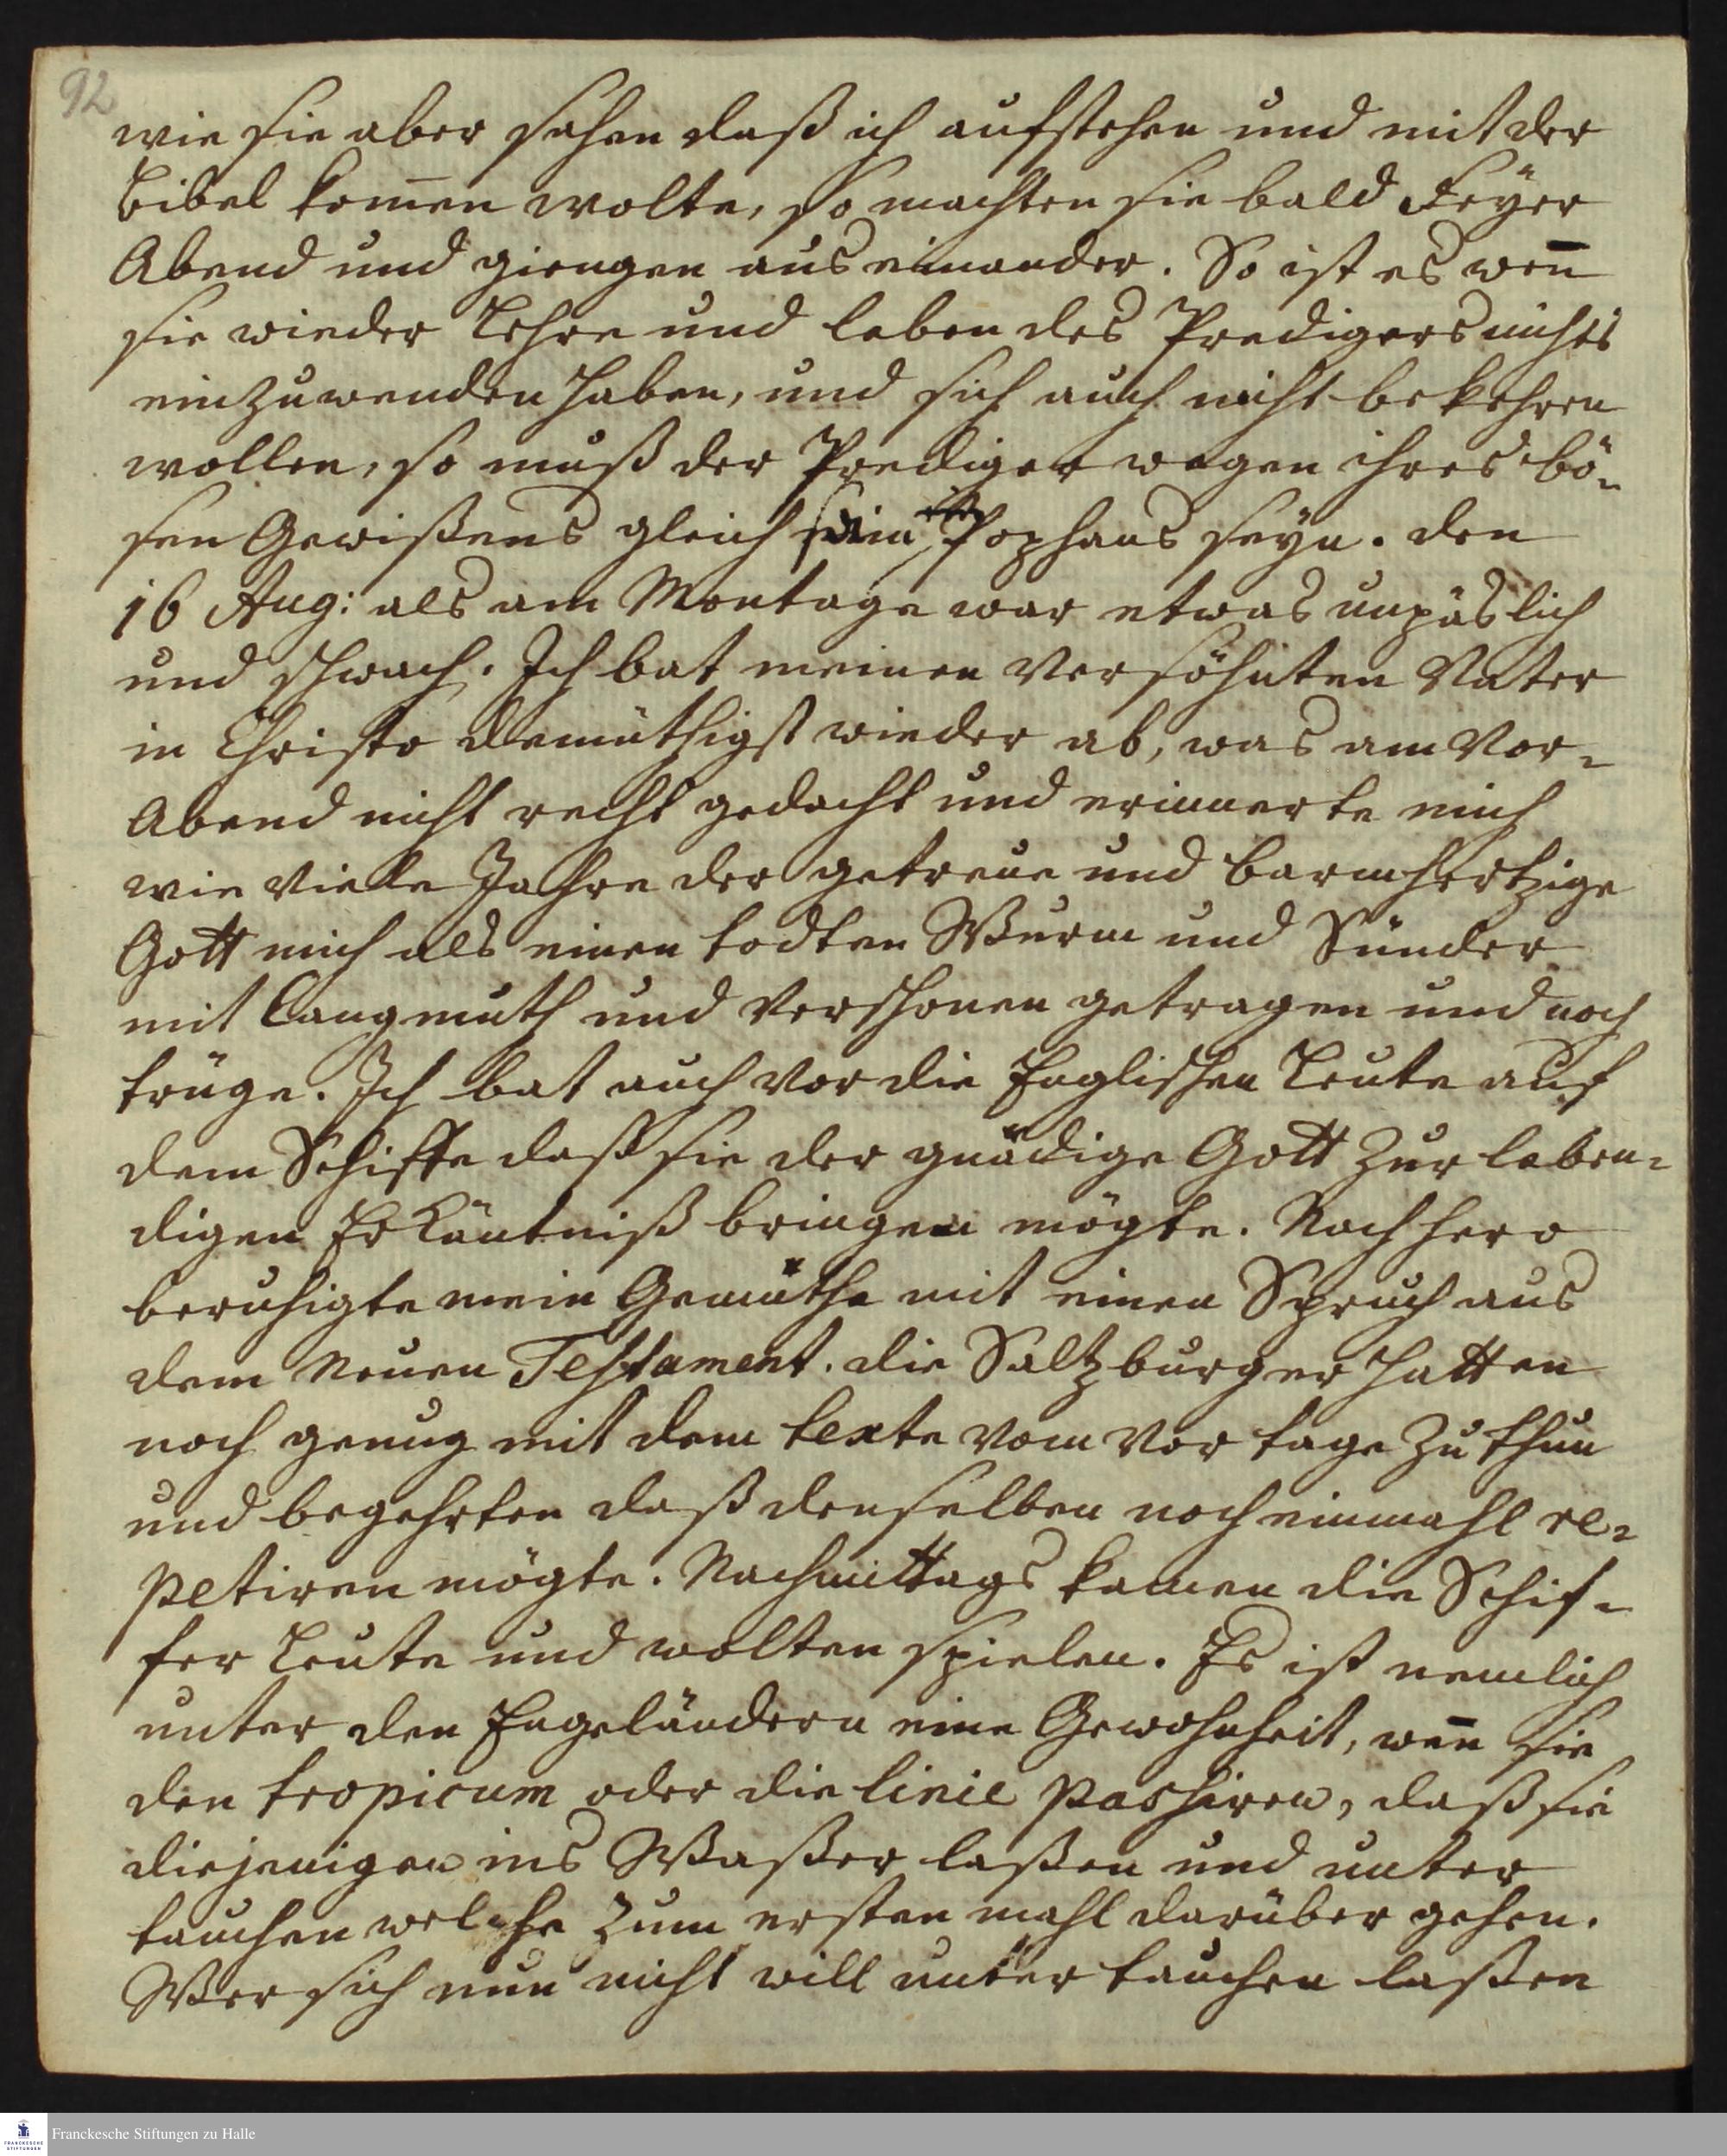 92
wie sie aber sahen daß ich aufstehen und mit der
Bibel kom̄en wolte, so machten sie bald Feyer
Abend und giengen aus einander. So ist es wen̄
sie wieder Lehre und leben des Predigers nichts
einzuwenden haben, und sich auch nicht bekehren
wollen, so muß der Prediger wegen ihres bö-
sen Gewißens gleich ein Pophans seyn. den
16 Aug: als am Montage war etwas unpäslich
und schwach. Ich bat meinen Versöhnten Vater
in Christo demüthigst wieder ab, was am Vor-
Abend nicht recht gedacht und erinnerte mich
wie viele Jahre der getreue und barmhertzige
Gott mich als einen todten Wurm und Sünder
mit Langmuth und Verschonen getragen und noch
trüge. Ich bat auch vor die Englischen Leute auf
dem Schiffe daß sie der gnädige Gott zur leben-
digen Erkäntniß bringen mögte. Nachhero
beruhigte mein Gemüthe mit einen Spruch aus
dem Neuen Testament. die Saltzburger hatten
noch genug mit dem texte vom Vor tage zu thun
und begehrten daß denselben noch einmahl re-
petiren mögte. Nachmittags kamen die Schif-
fer Leute und wolten spielen. Es ist nemlich
unter den Engeländern eine Gewohnheit, wen̄ sie
den tropicum oder die linie passiren, daß sie
diejenigen ins Waßer laßen und unter
tauchen welche zum ersten mahl darüber gehen.
Wer sich nun nicht will unter tauchen laßen
Franckesche Stiftungen zu Halle
FRANCKESCHE
STIFTUNGEN